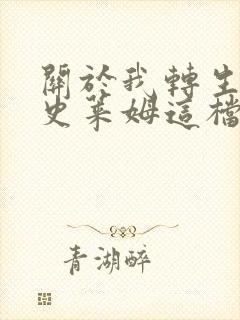 關於我轉生
史萊姆這檔
青湖醉